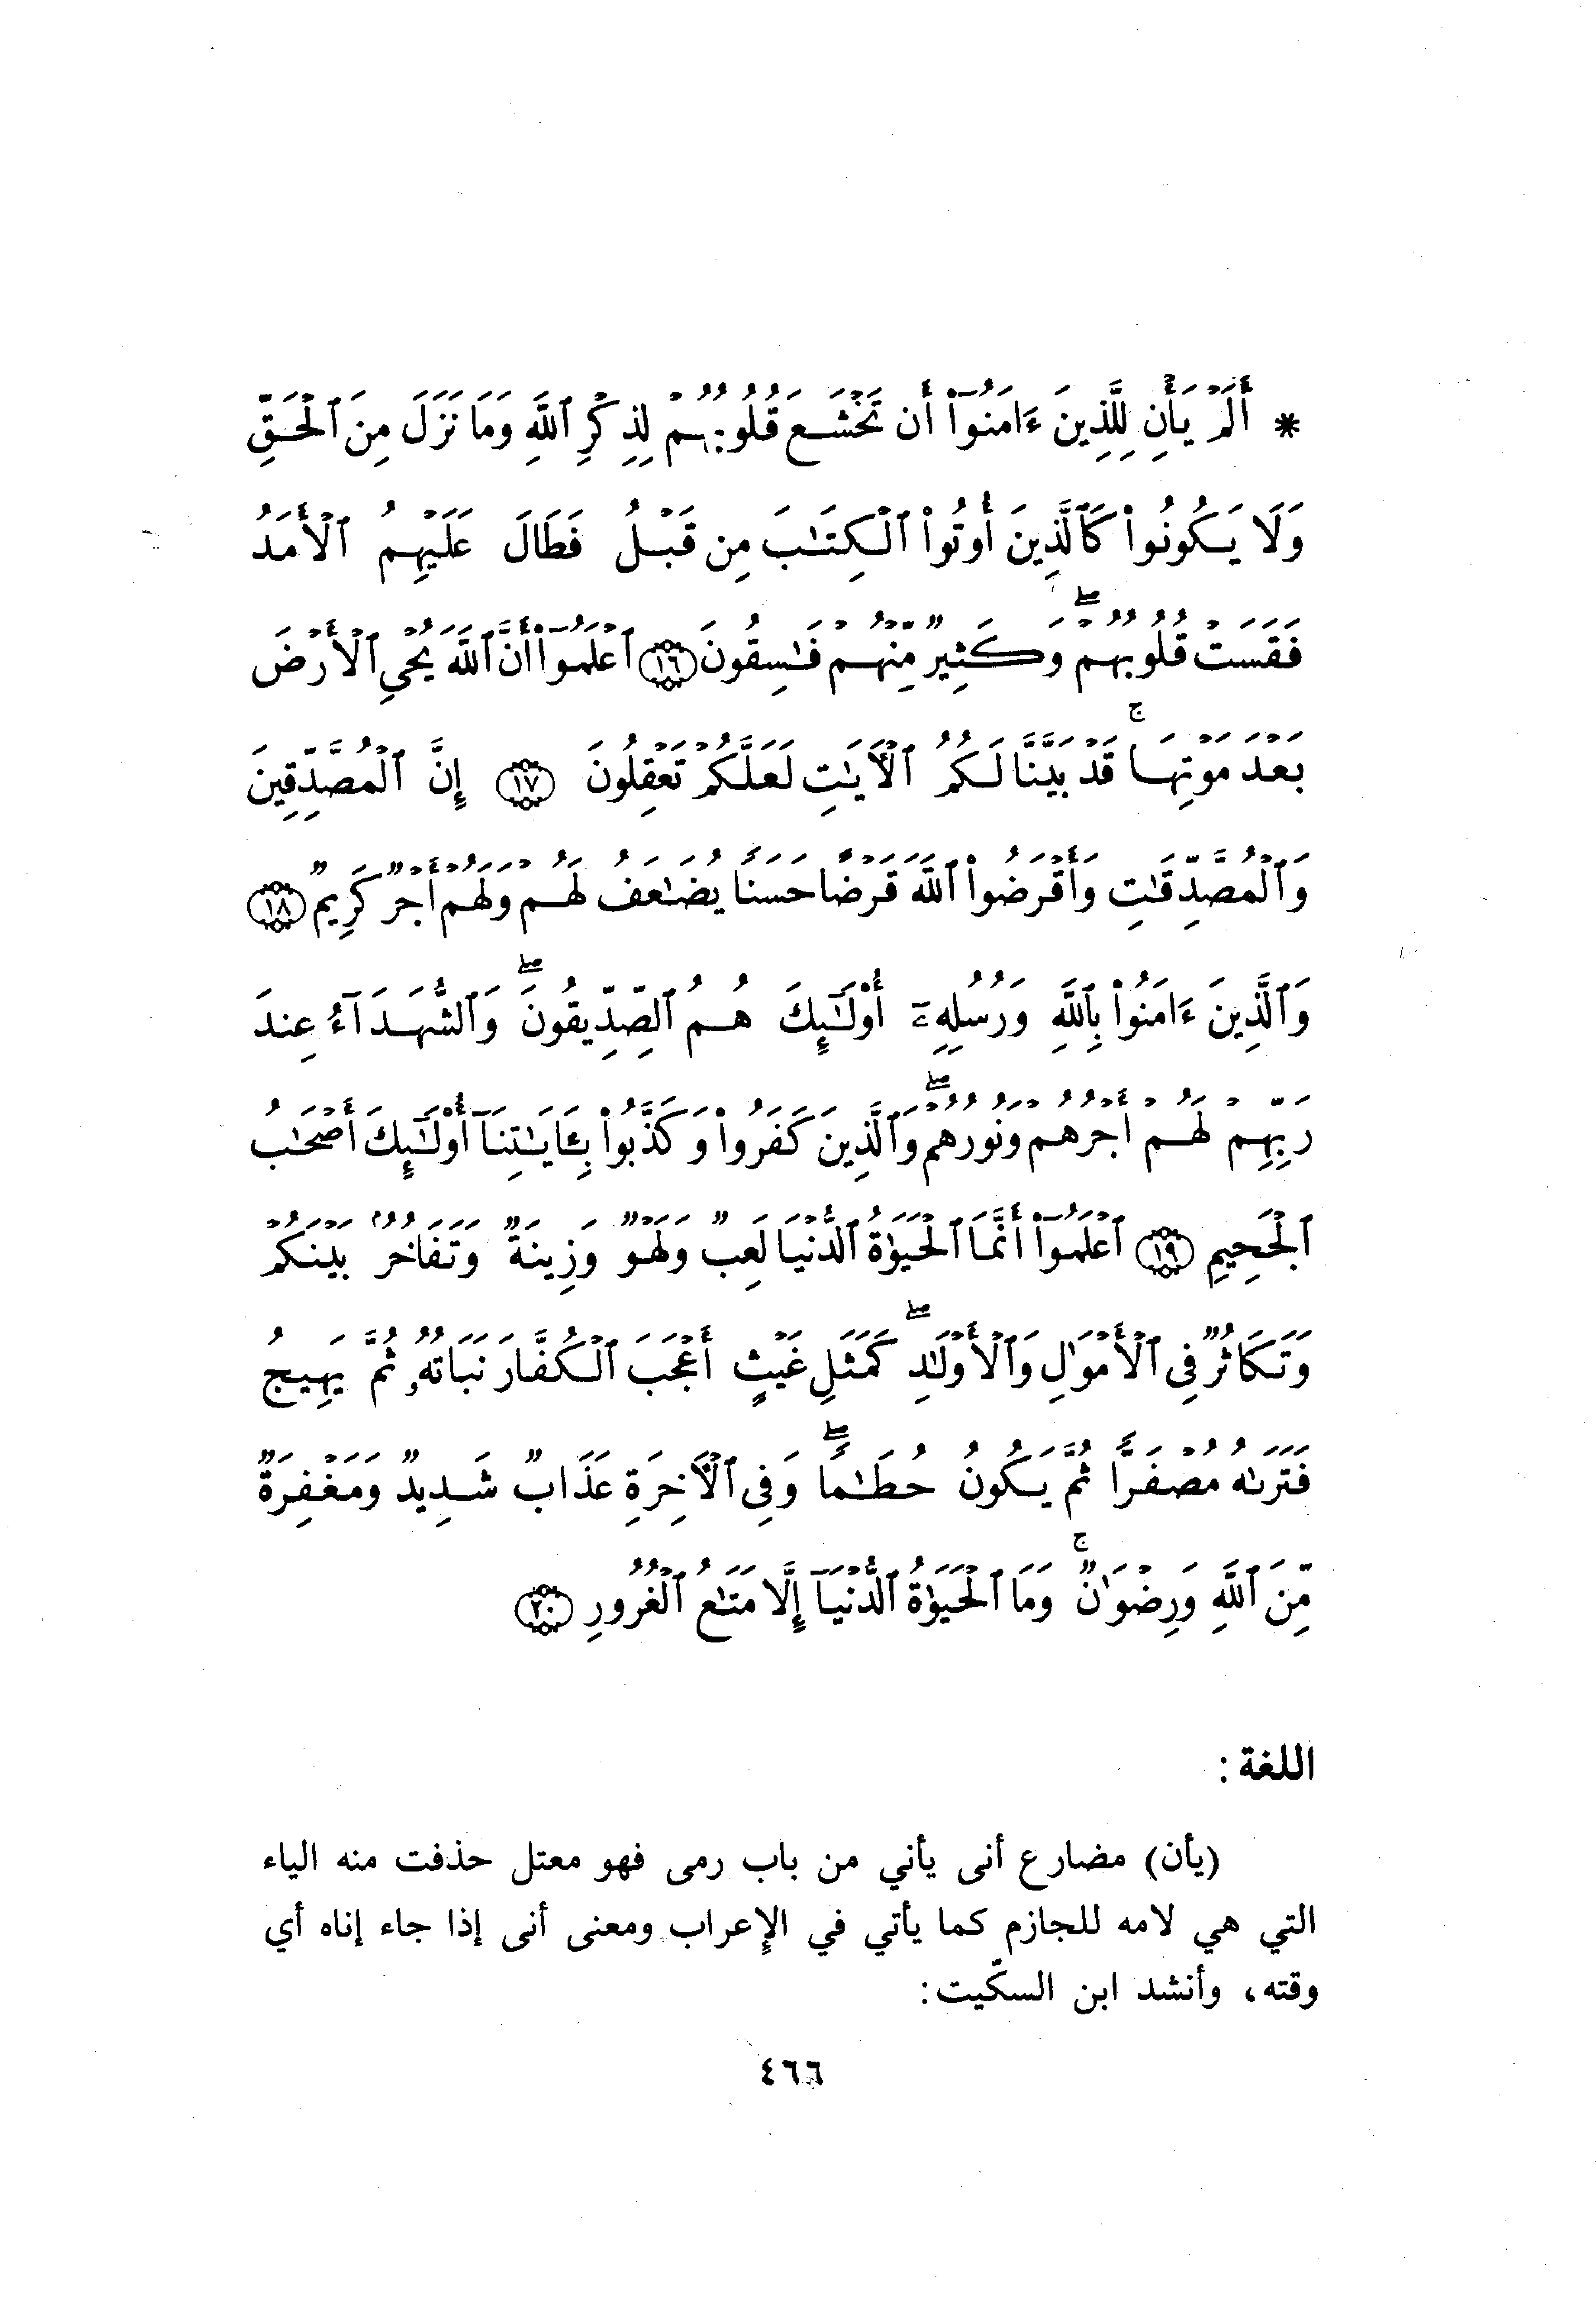 * أَلَمْ يَأْنِ لِلَّذِينَ ءَامَنُوٓا۟ أَن تَخْشَعَ قُلُوبُهُمْ لِذِكْرِ ٱللَّهِ وَمَا نَزَلَ مِنَ ٱلْحَقِّ
وَلَا يَكُونُوا۟ كَٱلَّذِينَ أُوتُوا۟ ٱلْكِتَٰبَ مِن قَبْلُ فَطَالَ عَلَيْهِمُ ٱلْأَمَدُ
فَقَسَتْ قُلُوبُهُمْ ۖ وَكَثِيرٌ مِّنْهُمْ فَٰسِقُونَ ﴿١٦﴾ ٱعْلَمُوٓا۟ أَنَّ ٱللَّهَ يُحْيِ ٱلْأَرْضَ
بَعْدَ مَوْتِهَا ۚ قَدْ بَيَّنَّا لَكُمُ ٱلْءَايَٰتِ لَعَلَّكُمْ تَعْقِلُونَ ﴿١٧﴾ إِنَّ ٱلْمُصَّدِّقِينَ
وَٱلْمُصَّدِّقَٰتِ وَأَقْرَضُوا۟ ٱللَّهَ قَرْضًا حَسَنًا يُضَٰعَفُ لَهُمْ وَلَهُمْ أَجْرٌ كَرِيمٌ ﴿١٨﴾
وَٱلَّذِينَ ءَامَنُوا۟ بِٱللَّهِ وَرُسُلِهِۦٓ أُو۟لَٰٓئِكَ هُمُ ٱلصِّدِّيقُونَ ۖ وَٱلشُّهَدَآءُ عِندَ
رَبِّهِمْ لَهُمْ أَجْرُهُمْ وَنُورُهُمْ ۖ وَٱلَّذِينَ كَفَرُوا۟ وَكَذَّبُوا۟ بِـَٔايَٰتِنَآ أُو۟لَٰٓئِكَ أَصْحَٰبُ
ٱلْجَحِيمِ ﴿١٩﴾ ٱعْلَمُوٓا۟ أَنَّمَا ٱلْحَيَوٰةُ ٱلدُّنْيَا لَعِبٌ وَلَهْوٌ وَزِينَةٌ وَتَفَاخُرٌۢ بَيْنَكُمْ
وَتَكَاثُرٌ فِى ٱلْأَمْوَٰلِ وَٱلْأَوْلَٰدِ ۖ كَمَثَلِ غَيْثٍ أَعْجَبَ ٱلْكُفَّارَ نَبَاتُهُۥ ثُمَّ يَهِيجُ
فَتَرَىٰهُ مُصْفَرًّا ثُمَّ يَكُونُ حُطَٰمًا ۖ وَفِى ٱلْءَاخِرَةِ عَذَابٌ شَدِيدٌ وَمَغْفِرَةٌ
مِّنَ ٱللَّهِ وَرِضْوَٰنٌ ۚ وَمَا ٱلْحَيَوٰةُ ٱلدُّنْيَآ إِلَّا مَتَٰعُ ٱلْغُرُورِ ﴿٢٠﴾
اللغة :
(يأن) مضارع أنى يأني من باب رمى فهو معتل حذفت منه الياء
التي هي لامه للجازم كما يأتي في الإعراب ومعنى أنى إذا جاء إناه أي
وقته، وأنشد ابن السكّيت:
٤٦٦